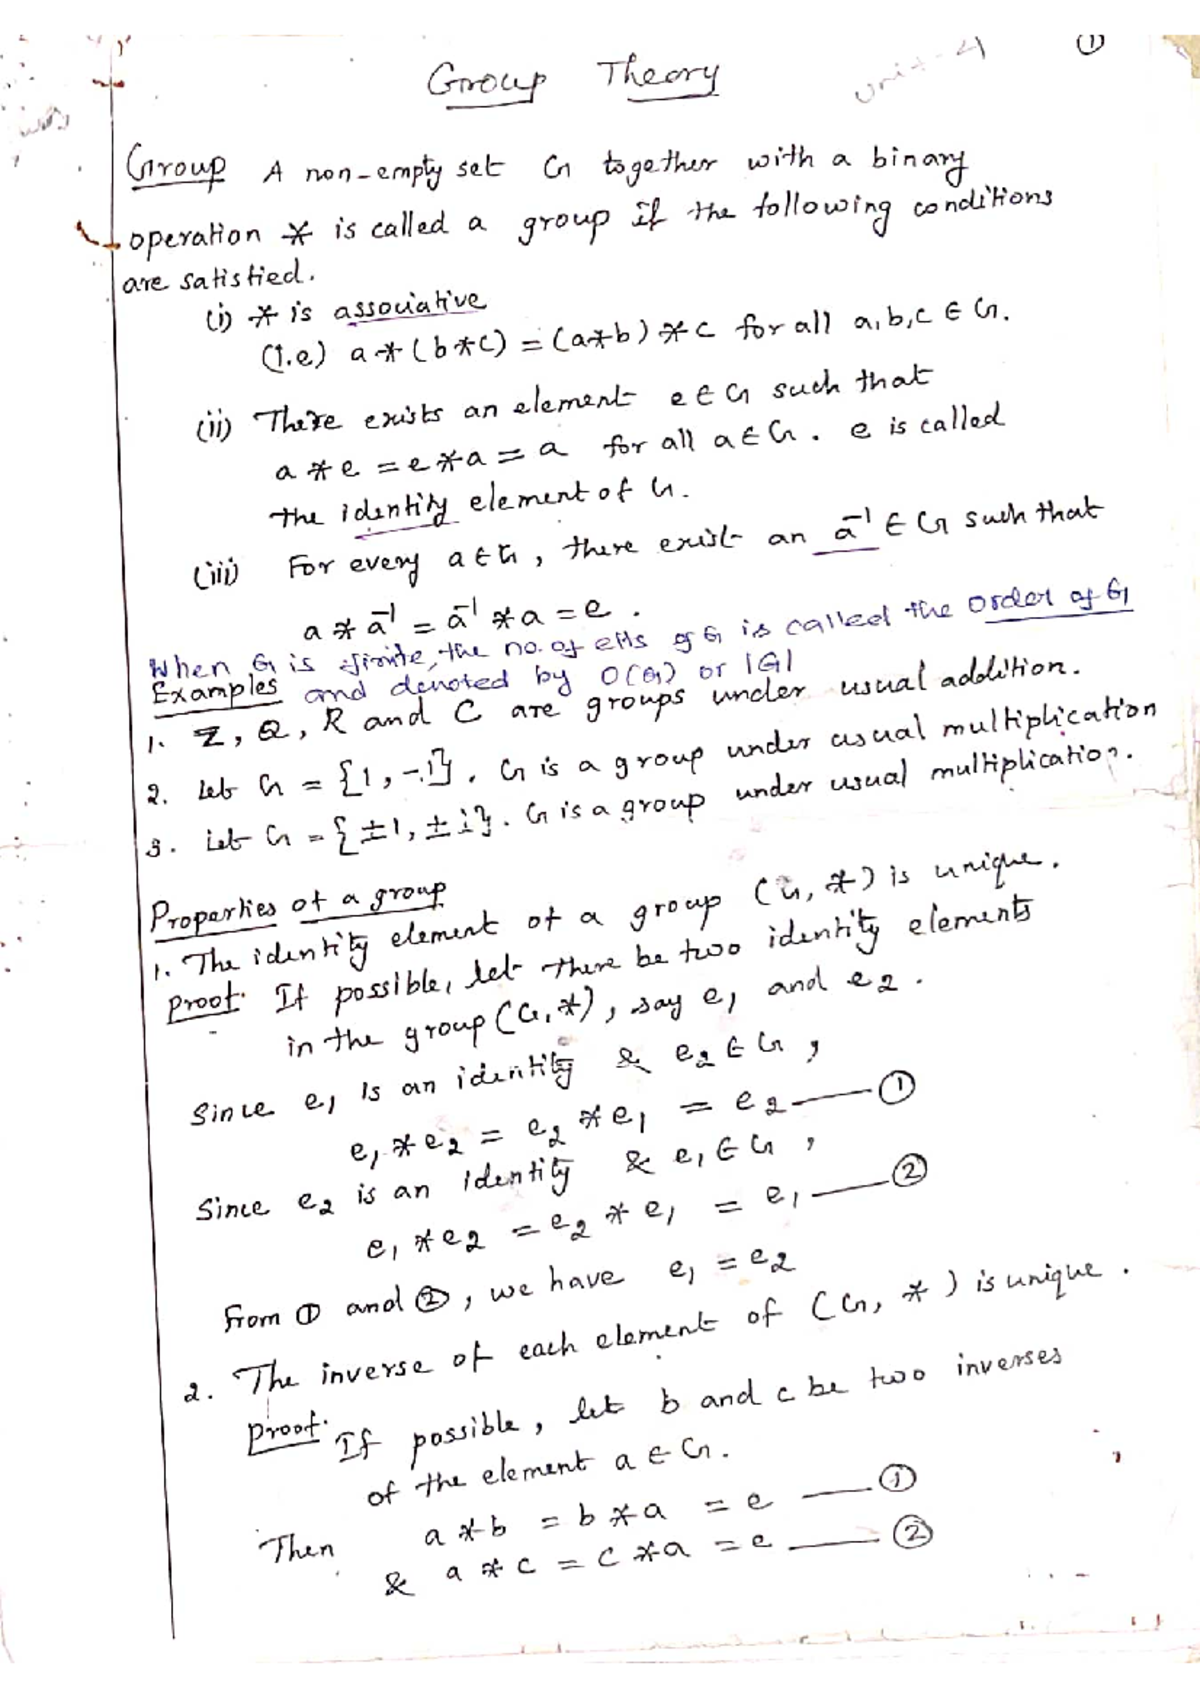 Group Theory
Unit-4
①
Group A non-empty set G together with a binary
operation * is called a group if the following conditions
are satisfied.
(i) * is associative
(i.e) a*(b*c) = (a*b)*c for all a,b,c ∈ G.
(ii) There exists an element e ∈ G such that
a*e = e*a = a for all a ∈ G. e is called
the identity element of G.
(iii) For every a ∈ G, there exist an a⁻¹ ∈ G such that
a*a⁻¹ = a⁻¹*a = e.
When G is finite, the no. of elts of G is called the order of G
and denoted by O(G) or |G|
Examples
1. Z, Q, R and C are groups under usual addition.
2. Let G = {1, -1}. G is a group under usual multiplication
3. Let G = {±1, ±i}. G is a group under usual multiplication.
Properties of a group
1. The identity element of a group (G, *) is unique.
Proof: If possible, let there be two identity elements
in the group (G, *), say e₁ and e₂.
Since e₁ is an identity & e₂ ∈ G,
e₁*e₂ = e₂*e₁ = e₂ —— ①
Since e₂ is an identity & e₁ ∈ G,
e₁*e₂ = e₂*e₁ = e₁ —— ②
From ① and ②, we have e₁ = e₂
2. The inverse of each element of (G, *) is unique.
Proof: If possible, let b and c be two inverses
of the element a ∈ G.
Then a*b = b*a = e —— ①
& a*c = c*a = e —— ②